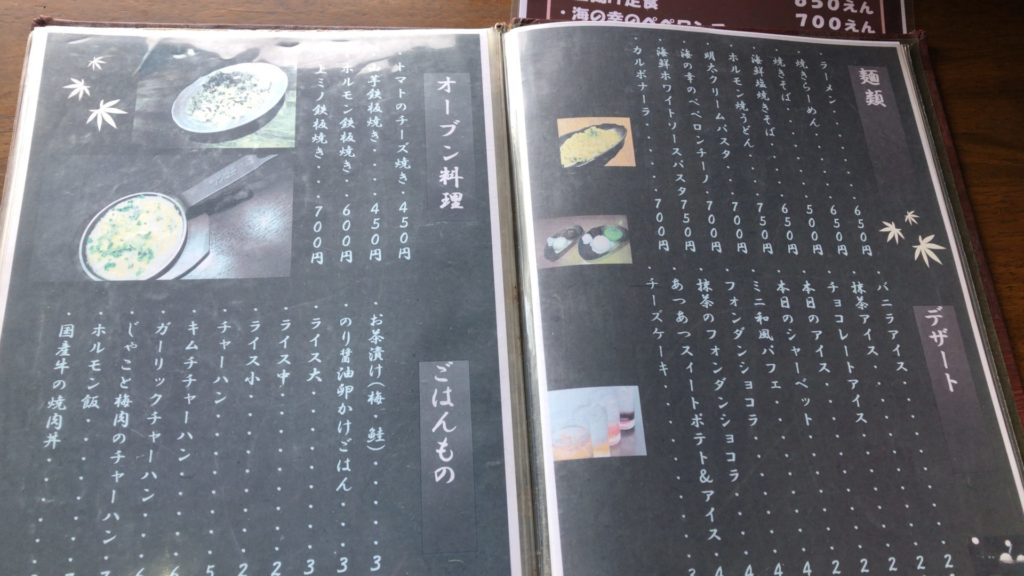 850えん
・海の幸のペペロンチーノ 700えん
麺類
・ラーメン・・・・・・650円
・焼きらーめん・・・・650円
・焼きそば・・・・・・500円
・海鮮塩焼きそば・・・650円
・ホルモン焼うどん・・750円
・明太クリームパスタ・700円
・海の幸のペペロンチーノ・700円
・海鮮ホワイトソースパスタ750円
・カルボナーラ・・・・700円
デザート
・バニラアイス・・・・・・・2
・抹茶アイス・・・・・・・2
・チョコレートアイス・・・・2
・本日のアイス・・・・・・2
・本日のシャーベット・・・・2
・ミニ和風パフェ・・・・・4
・フォンダンショコラ・・・・4
・抹茶のフォンダンショコラ・・4
・あつあつスイートポテト&アイス
・チーズケーキ・・・・・・3
オーブン料理
トマトのチーズ焼き・450円
山芋鉄板焼き・・・450円
ホルモン鉄板焼き・・600円
上ミノ鉄板焼き・・・700円
ごはんもの
・お茶漬け(梅、鮭)・・・3
・のり醤油卵かけごはん・・・3
・ライス大・・・・・・・3
・ライス中・・・・・・・2
・ライス小・・・・・・・2
・チャーハン・・・・・・5
・キムチチャーハン・・・・6
・ガーリックチャーハン・・・6
・じゃこと梅肉のチャーハン
・ホルモン飯・・・・・・7
・国産牛の焼肉丼・・・・・7